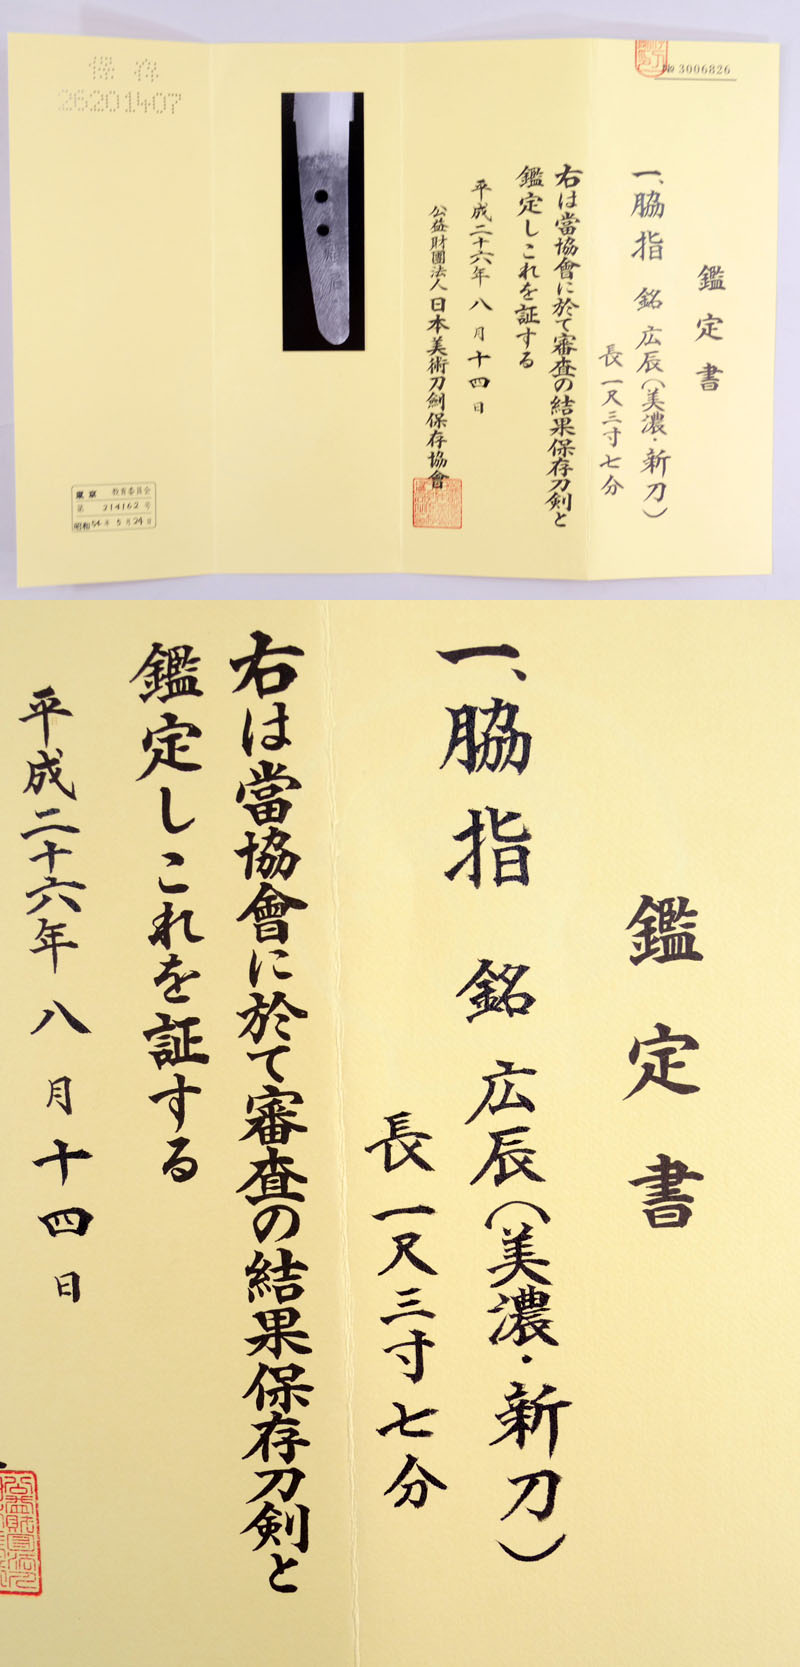 № 3006826
鑑定書
一、脇指 銘 広辰(美濃・新刀)
長 一尺三寸七分
右は當協會に於て審査の結果保存刀剣と
鑑定しこれを証する
平成二十六年 八月十四日
公益財團法人 日本美術刀劍保存協會
保存
26201407
東京 教育委員会
第 214162 号
昭和54年5月24日
鑑定書
一、脇指 銘 広辰(美濃・新刀)
長 一尺三寸七分
右は當協會に於て審査の結果保存刀剣と
鑑定しこれを証する
平成二十六年 八月十四日